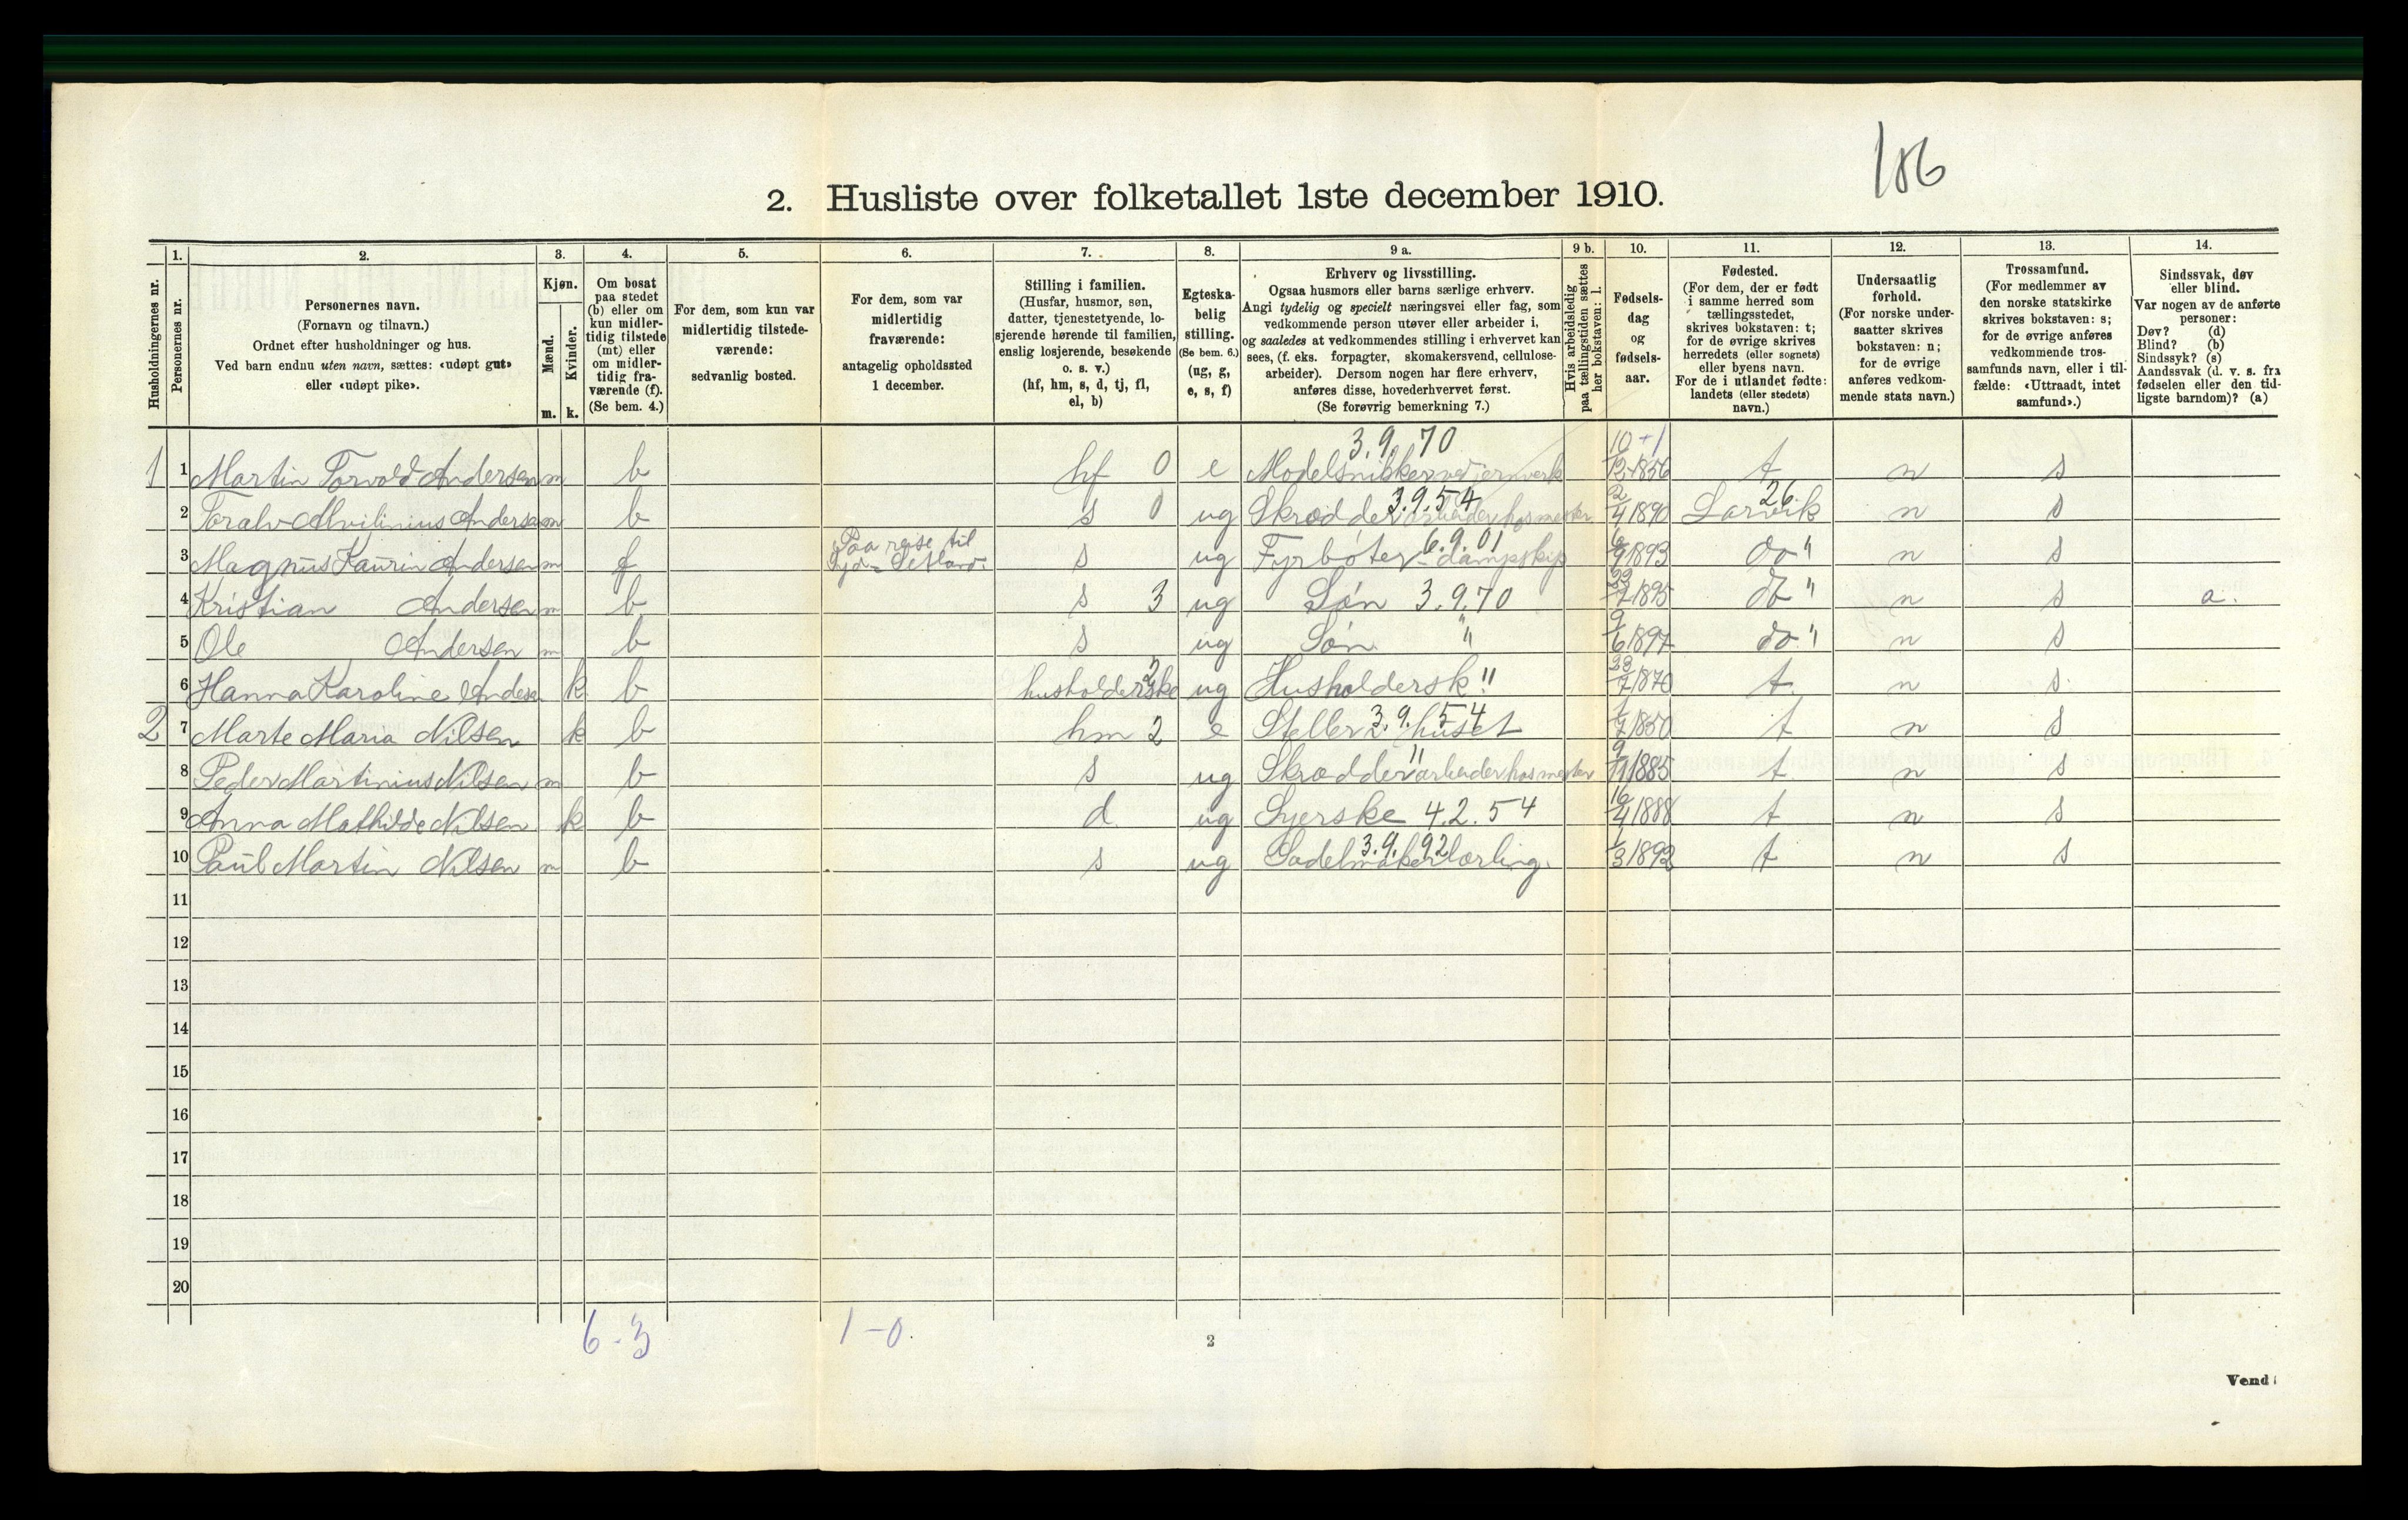 186
2. Husliste over folketallet 1ste december 1910.
1. 2. 3. 4. 5. 6. 7. 8. 9 a. 9 b. 10. 11. 12. 13. 14.
Husholdningernes nr.
Personernes nr.
Personernes navn.
(Fornavn og tilnavn.)
Ordnet efter husholdninger og hus.
Ved barn endnu uten navn, sættes: «udøpt gut»
eller «udøpt pike».
Kjøn.
Mænd.
Kvinder.
m. k.
Om bosat
paa stedet
(b) eller om
kun midler-
tidig tilstede
(mt) eller
om midler-
tidig fra-
værende (f).
(Se bem. 4.)
For dem, som kun var
midlertidig tilstede-
værende:
sedvanlig bosted.
For dem, som var
midlertidig
fraværende:
antagelig opholdssted
1 december.
Stilling i familien.
(Husfar, husmor, søn,
datter, tjenestetyende, lo-
sjerende hørende til familien,
enslig losjerende, besøkende
o. s. v.)
(hf, hm, s, d, tj, fl,
el, b)
Egteska-
belig
stilling.
(Se bem. 6.)
(ug, g,
e, s, f)
Erhverv og livsstilling.
Ogsaa husmors eller barns særlige erhverv.
Angi tydelig og specielt næringsvei eller fag, som
vedkommende person utøver eller arbeider i,
og saaledes at vedkommendes stilling i erhvervet kan
sees, (f. eks. forpagter, skomakersvend, cellulose-
arbeider). Dersom nogen har flere erhverv,
anføres disse, hovederhvervet først.
(Se forøvrig bemerkning 7.)
Hvis arbeidsledig
paa tællingstiden sættes
her bokstaven: l.
Fødsels-
dag
og
fødsels-
aar.
Fødested.
(For dem, der er født
i samme herred som
tællingsstedet,
skrives bokstaven: t;
for de øvrige skrives
herredets (eller sognets)
eller byens navn.
For de i utlandet fødte:
landets (eller stedets)
navn.)
Undersaatlig
forhold.
(For norske under-
saatter skrives
bokstaven: n;
for de øvrige
anføres vedkom-
mende stats navn.)
Trossamfund.
(For medlemmer av
den norske statskirke
skrives bokstaven: s;
for de øvrige anføres
vedkommende tros-
samfunds navn, eller i til-
fælde: «Uttraadt, intet
samfund».)
Sindssvak, døv
eller blind.
Var nogen av de anførte
personer:
Døv? (d)
Blind? (b)
Sindssyk? (s)
Aandssvak (d. v. s. fra
fødselen eller den tid-
ligste barndom)? (a)
3.9.70 10+1
1 1 Martin Torvald Andersen m b hf 0 e Modelsnikker ved jernverk /12 1856 t n s
3.9.54 26.
2 Toralv Alvilinius Andersen m b s 0 ug Skrædder arbeider hos mester 2/4 1890 Larvik n s
Paa reise til 6.9.01
3 Magnus Kaurin Andersen m f s ug Fyrbøter - dampskip 6/9 1893 do " n s
4 Kristian Andersen m b s 3 ug Søn 3.9.70 /7 1895 do " n s a.
5 Ole Andersen m b s ug Søn " 9/6 1897 do " n s
6 Hanna Karoline Anderse k b husholderske 2 ug Husholdersk " 23/7 1870 t n s
3.9.54
2 7 Marte Maria Nilsen k b hm 2 e Steller huset 1/7 1850 t n s
"
8 Peder Martinius Nilsen m b s ug Skrædder arbeider hos mester 9/11 1885 t n s
9 Anna Mathilde Nilsen k b d ug Syerske 4.2.54 16/4 1888 t n s
3.9.92
10 Paul Martin Nilsen m b s ug Sadelmakerlærling. 1/3 1892 t n s
11
12
13
14
15
16
17
18
19
20
6 - 3 1 - 0.
2
Vend!